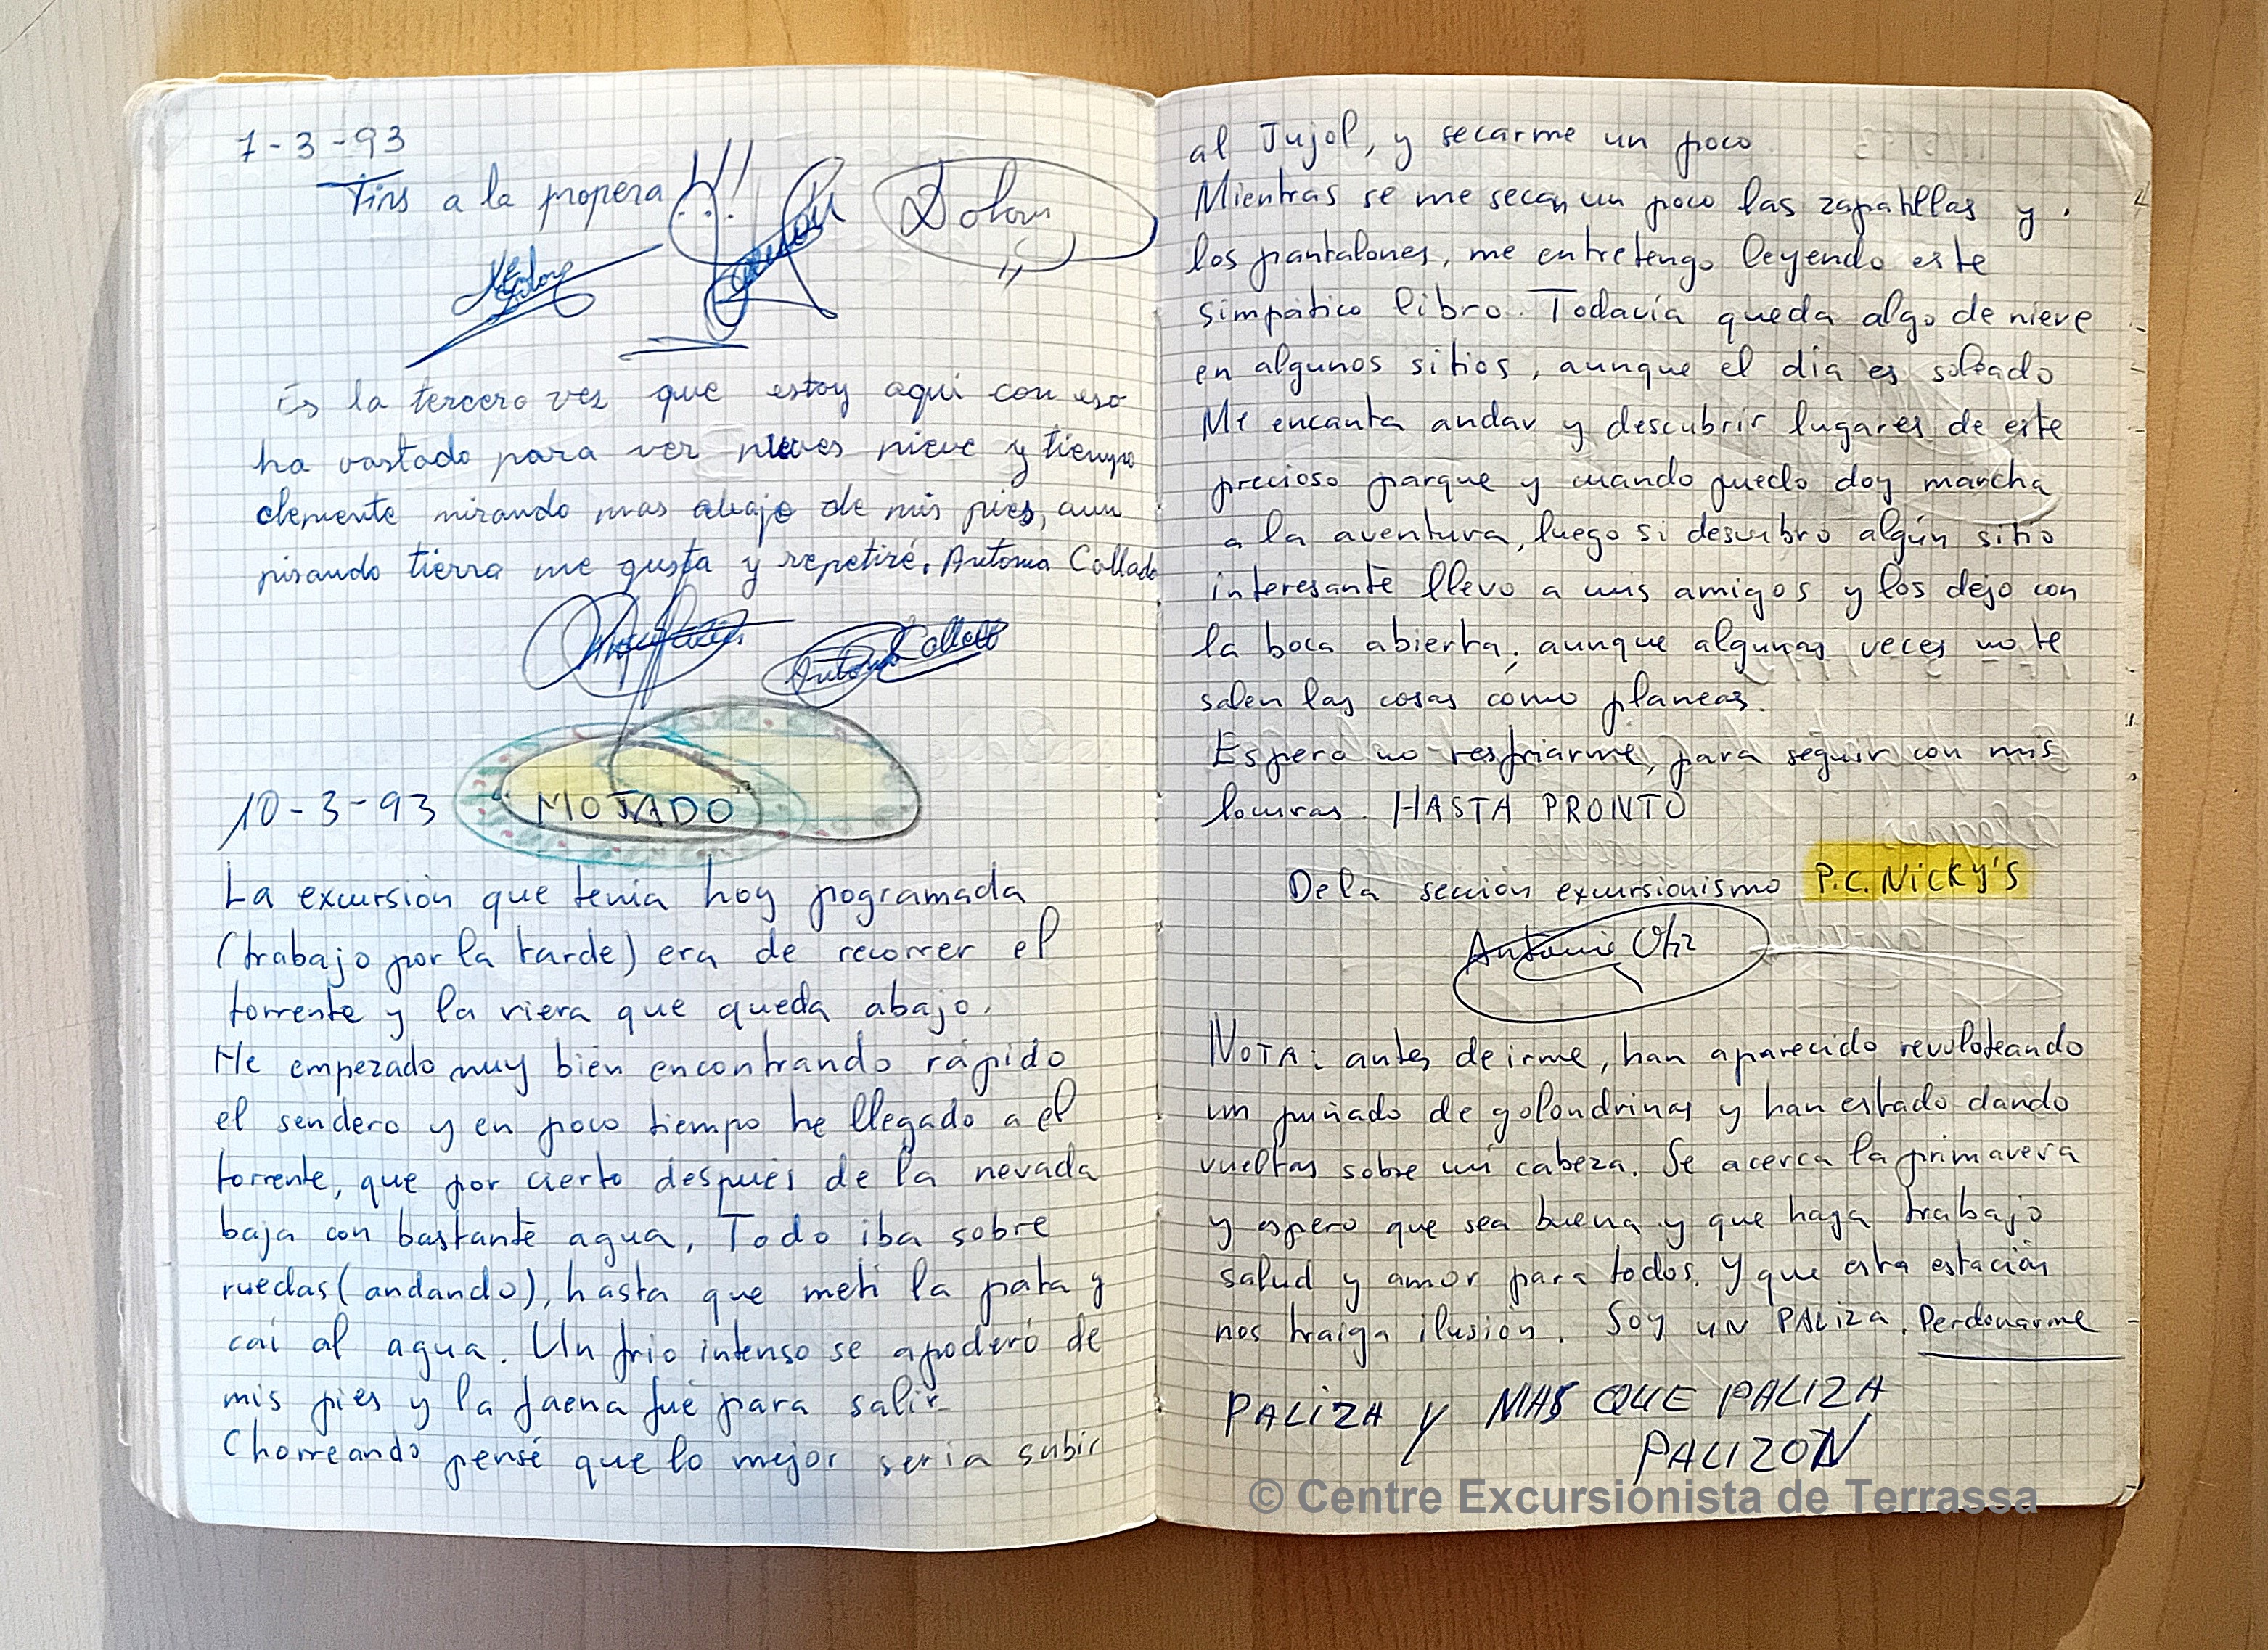 7-3-93
Fins a la propera
Es la tercero ves que estoy aqui con eso
ha vastado para ver nieve y tiempo
clemente mirando mas abajo de mis pies, aun
pisando tierra me gusta y repetiré. Antonia Collado
10-3-93 MOJADO
La excursión que tenia hoy pogramada
(trabajo por la tarde) era de recorrer el
torrente y la riera que queda abajo.
He empezado muy bien encontrando rápido
el sendero y en poco tiempo he llegado a el
torrente, que por cierto después de la nevada
baja con bastante agua, Todo iba sobre
ruedas (andando), hasta que metí la pata y
caí al agua. Un frio intenso se apoderó de
mis pies y la faena fué para salir
Chorreando pensé que lo mejor seria subir
al Jujol, y secarme un poco.
Mientras se me secan un poco las zapatillas y
los pantalones, me entretengo leyendo este
simpático libro. Todavía queda algo de nieve
en algunos sitios, aunque el día es soleado
Me encanta andar y descubrir lugares de este
precioso parque y cuando puedo doy marcha
a la aventura, luego si descubro algún sitio
interesante llevo a mis amigos y los dejo con
la boca abierta; aunque algunas veces no te
salen las cosas como planeas.
Espero no resfriarme, para seguir con mis
locuras. HASTA PRONTO
De la sección excursionismo P.C. NICKY'S
Antonio
NOTA: antes de irme, han aparecido revoloteando
un puñado de golondrinas y han estado dando
vueltas sobre mi cabeza. Se acerca la primavera
y espero que sea buena y que haga trabajo
salud y amor para todos. Y que esta estación
nos traiga ilusión. SOY UN PALIZA. Perdonarme
PALIZA Y MAS QUE PALIZA
PALIZON
© Centre Excursionista de Terrassa